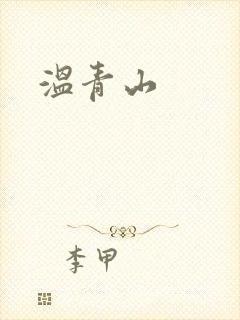 温青山
李甲